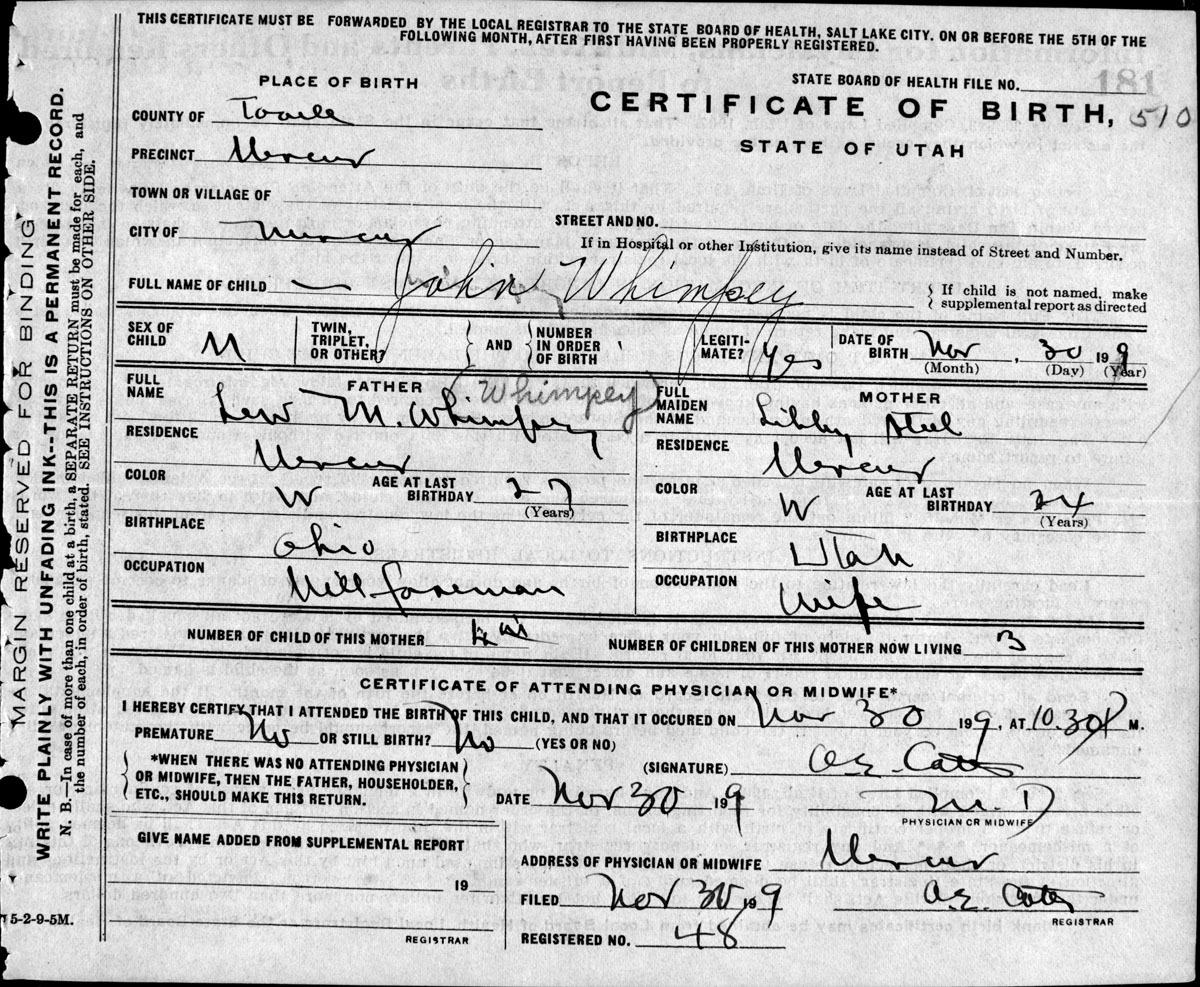 THIS CERTIFICATE MUST BE FORWARDED BY THE LOCAL REGISTRAR TO THE STATE BOARD OF HEALTH, SALT LAKE CITY. ON OR BEFORE THE 5TH OF THE
FOLLOWING MONTH, AFTER FIRST HAVING BEEN PROPERLY REGISTERED.
MARGIN RESERVED FOR BINDING
WRITE PLAINLY WITH UNFADING INK--THIS IS A PERMANENT RECORD.
N. B.—In case of more than one child at a birth, a SEPARATE RETURN must be made for each, and
the number of each, in order of birth, stated. SEE INSTRUCTIONS ON OTHER SIDE.
PLACE OF BIRTH
STATE BOARD OF HEALTH FILE NO. 181
CERTIFICATE OF BIRTH, 510
STATE OF UTAH
COUNTY OF Tooele
PRECINCT Mercur
TOWN OR VILLAGE OF
CITY OF Mercur
STREET AND NO.
If in Hospital or other Institution, give its name instead of Street and Number.
FULL NAME OF CHILD John Whimpey
{ If child is not named, make
supplemental report as directed
SEX OF CHILD M
TWIN, TRIPLET, OR OTHER?
AND
NUMBER IN ORDER OF BIRTH
LEGITI-MATE? Yes
DATE OF BIRTH Nov, 30 199
(Month) (Day) (Year)
FATHER (Whimpey)
FULL NAME Lew M. Whimpey
RESIDENCE Mercur
COLOR W AGE AT LAST BIRTHDAY 27
(Years)
BIRTHPLACE Ohio
OCCUPATION Mill foreman
MOTHER
FULL MAIDEN NAME Libby Steel
RESIDENCE Mercur
COLOR W AGE AT LAST BIRTHDAY 24
(Years)
BIRTHPLACE Utah
OCCUPATION Wife
NUMBER OF CHILD OF THIS MOTHER 4
NUMBER OF CHILDREN OF THIS MOTHER NOW LIVING 3
CERTIFICATE OF ATTENDING PHYSICIAN OR MIDWIFE*
I HEREBY CERTIFY THAT I ATTENDED THE BIRTH OF THIS CHILD, AND THAT IT OCCURED ON Nov 30 199, AT 10.30 P M.
PREMATURE No OR STILL BIRTH? No (YES OR NO)
*WHEN THERE WAS NO ATTENDING PHYSICIAN
OR MIDWIFE, THEN THE FATHER, HOUSEHOLDER,
ETC., SHOULD MAKE THIS RETURN.
(SIGNATURE)
DATE Nov 30 199 M. D
PHYSICIAN OR MIDWIFE
GIVE NAME ADDED FROM SUPPLEMENTAL REPORT
19
REGISTRAR
ADDRESS OF PHYSICIAN OR MIDWIFE Mercur
FILED Nov 30 199
REGISTRAR
REGISTERED NO. 48
5-2-9-5M.